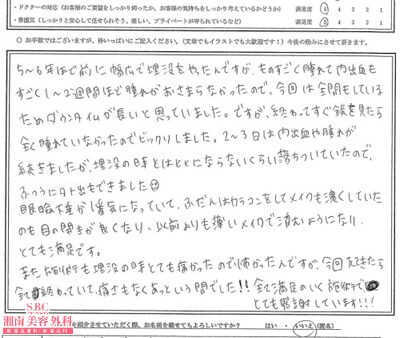 ・ドクターの対応（お客様のご要望をしっかり伺ったか、お客様の気持ちをしっかり考えているかどうか） 満足度 5 4 3 2 1
・雰囲気（しっかりと安心して任せられそう、優しい、プライベートが守られているなど） 満足度 5 4 3 2 1
○ お手数ではございますが、枠いっぱいにご記入ください。（文章でもイラストでも大歓迎です！）今後の励みにさせて頂きます。
5〜6年ほど前に幅広で埋没をやったんですが、ものすごく腫れて内出血も
すごく1〜2週間ほど腫れがおさまらなかったので、今回は全開もしている
ためダウンタイムが長いと思っていました。ですが、終わってすぐ鏡を見たら
全く腫れていなかったのでビックリしました。2〜3日は内出血や腫れが
続きましたが、埋没の時とはにならないくらい落ちついていたので、
ふつうに外出もできました
眼瞼下垂が1番気になっていて、ふだんはカラコンをしてメイクも濃くしていた
のも目の開きが良くなり、以前よりも薄いメイクで済むようになり、
とても満足です。
また、も埋没の時とても痛かったので怖かったんですが、今回
全て終わっていて、痛さもなくあっという間でした!! 全て満足のいく施術で
とても感謝しています!!!
SBC
湘南美容外科
を紹介させていただく際、お名前を載せてもよろしいですか？ はい ・ いいえ（匿名）